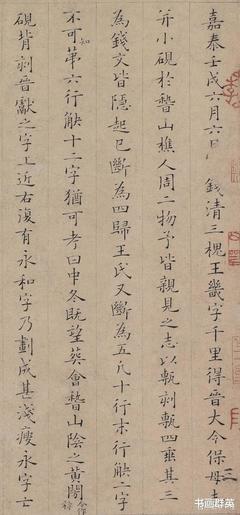 嘉泰壬戌六月六日錢清三槐王畿字千里得晉大令保母
并小硯於稽山樵人周二物予皆親見之志以甎刻甎四垂其三
為錢文皆隱起已斷為四歸王氏又斷為五凡十行末行缺二字
不可知第六行缺十二字猶可考曰中冬既望葬會稽山陰之黃閍
硯背刻晉獻之字上近右復有永和字乃劃成甚淺瘦永字亡
书画群英